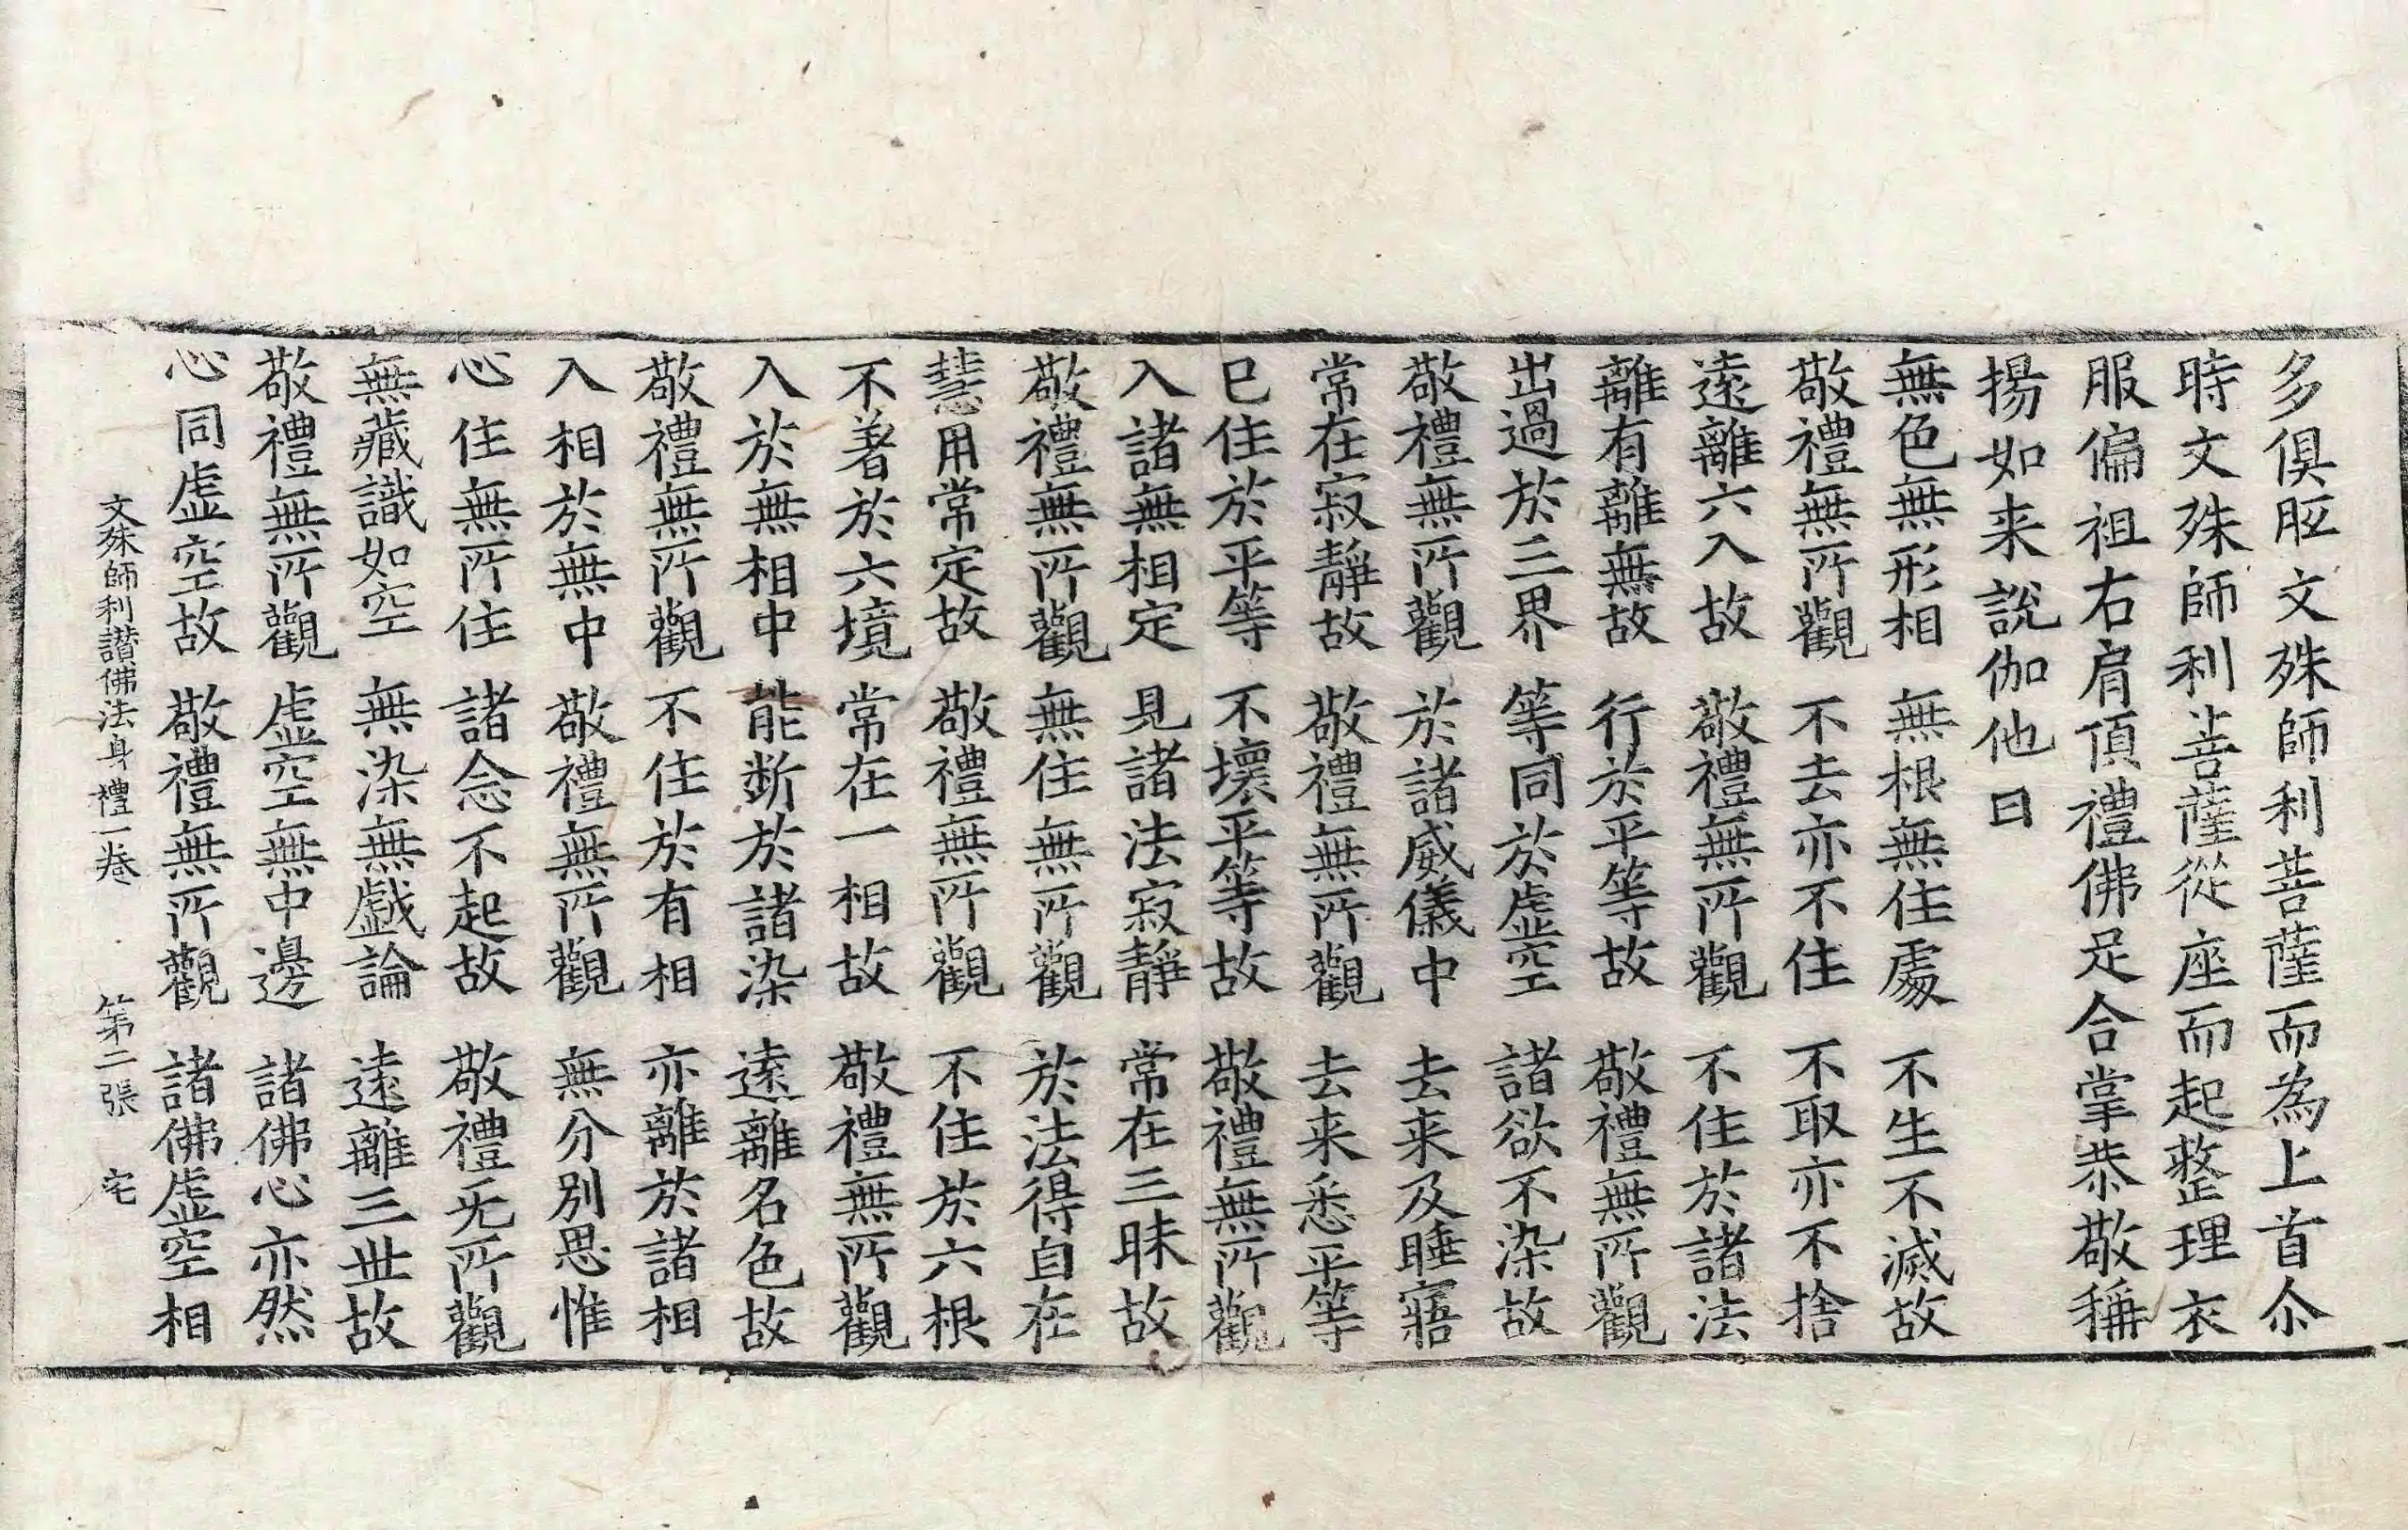 多俱胝文殊師利菩薩而為上首尒
時文殊師利菩薩從座而起整理衣
服偏袒右肩頂禮佛足合掌恭敬稱
揚如来說伽他曰
無色無形相 無根無住處 不生不滅故
敬禮無所觀 不去亦不住 不取亦不捨
遠離六入故 敬禮無所觀 不住於諸法
離有離無故 行於平等故 敬禮無所觀
出過於三界 等同於虛空 諸欲不染故
敬禮無所觀 於諸威儀中 去来及睡寤
常在寂靜故 敬禮無所觀 去来悉平等
已住於平等 不壞平等故 敬禮無所觀
入諸無相定 見諸法寂靜 常在三昧故
敬禮無所觀 無住無所觀 於法得自在
慧用常定故 敬禮無所觀 不住於六根
不著於六境 常在一相故 敬禮無所觀
入於無相中 能断於諸染 遠離名色故
敬禮無所觀 不住於有相 亦離於諸相
入相於無中 敬禮無所觀 無分別思惟
心住無所住 諸念不起故 敬禮无所觀
無藏識如空 無染無戲論 遠離三世故
敬禮無所觀 虛空無中邊 諸佛心亦然
心同虛空故 敬禮無所觀 諸佛虛空相
文殊師利讃佛法身禮一卷 第二張 宅